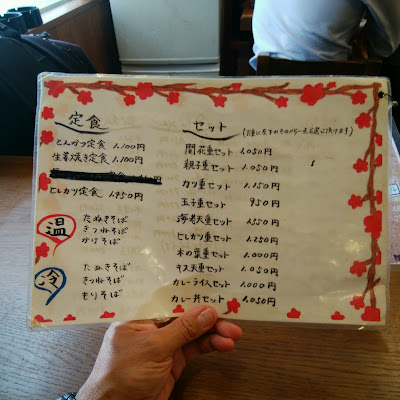 定食
とんかつ定食 1,100円
生姜焼き定食 1,100円
ヒレカツ定食 1,450円
温
たぬきそば
きつねそば
かけそば
冷
たぬきそば
きつねそば
もりそば
セット
開花重セット 1,050円
親子重セット 1,050円
カツ重セット 1,150円
玉子重セット 950円
海老天重セット 1,550円
ヒレカツ重セット 1,250円
木の葉重セット 1,000円
キス天重セット 1,050円
カレーライスセット 1,000円
カレー丼セット 1,050円